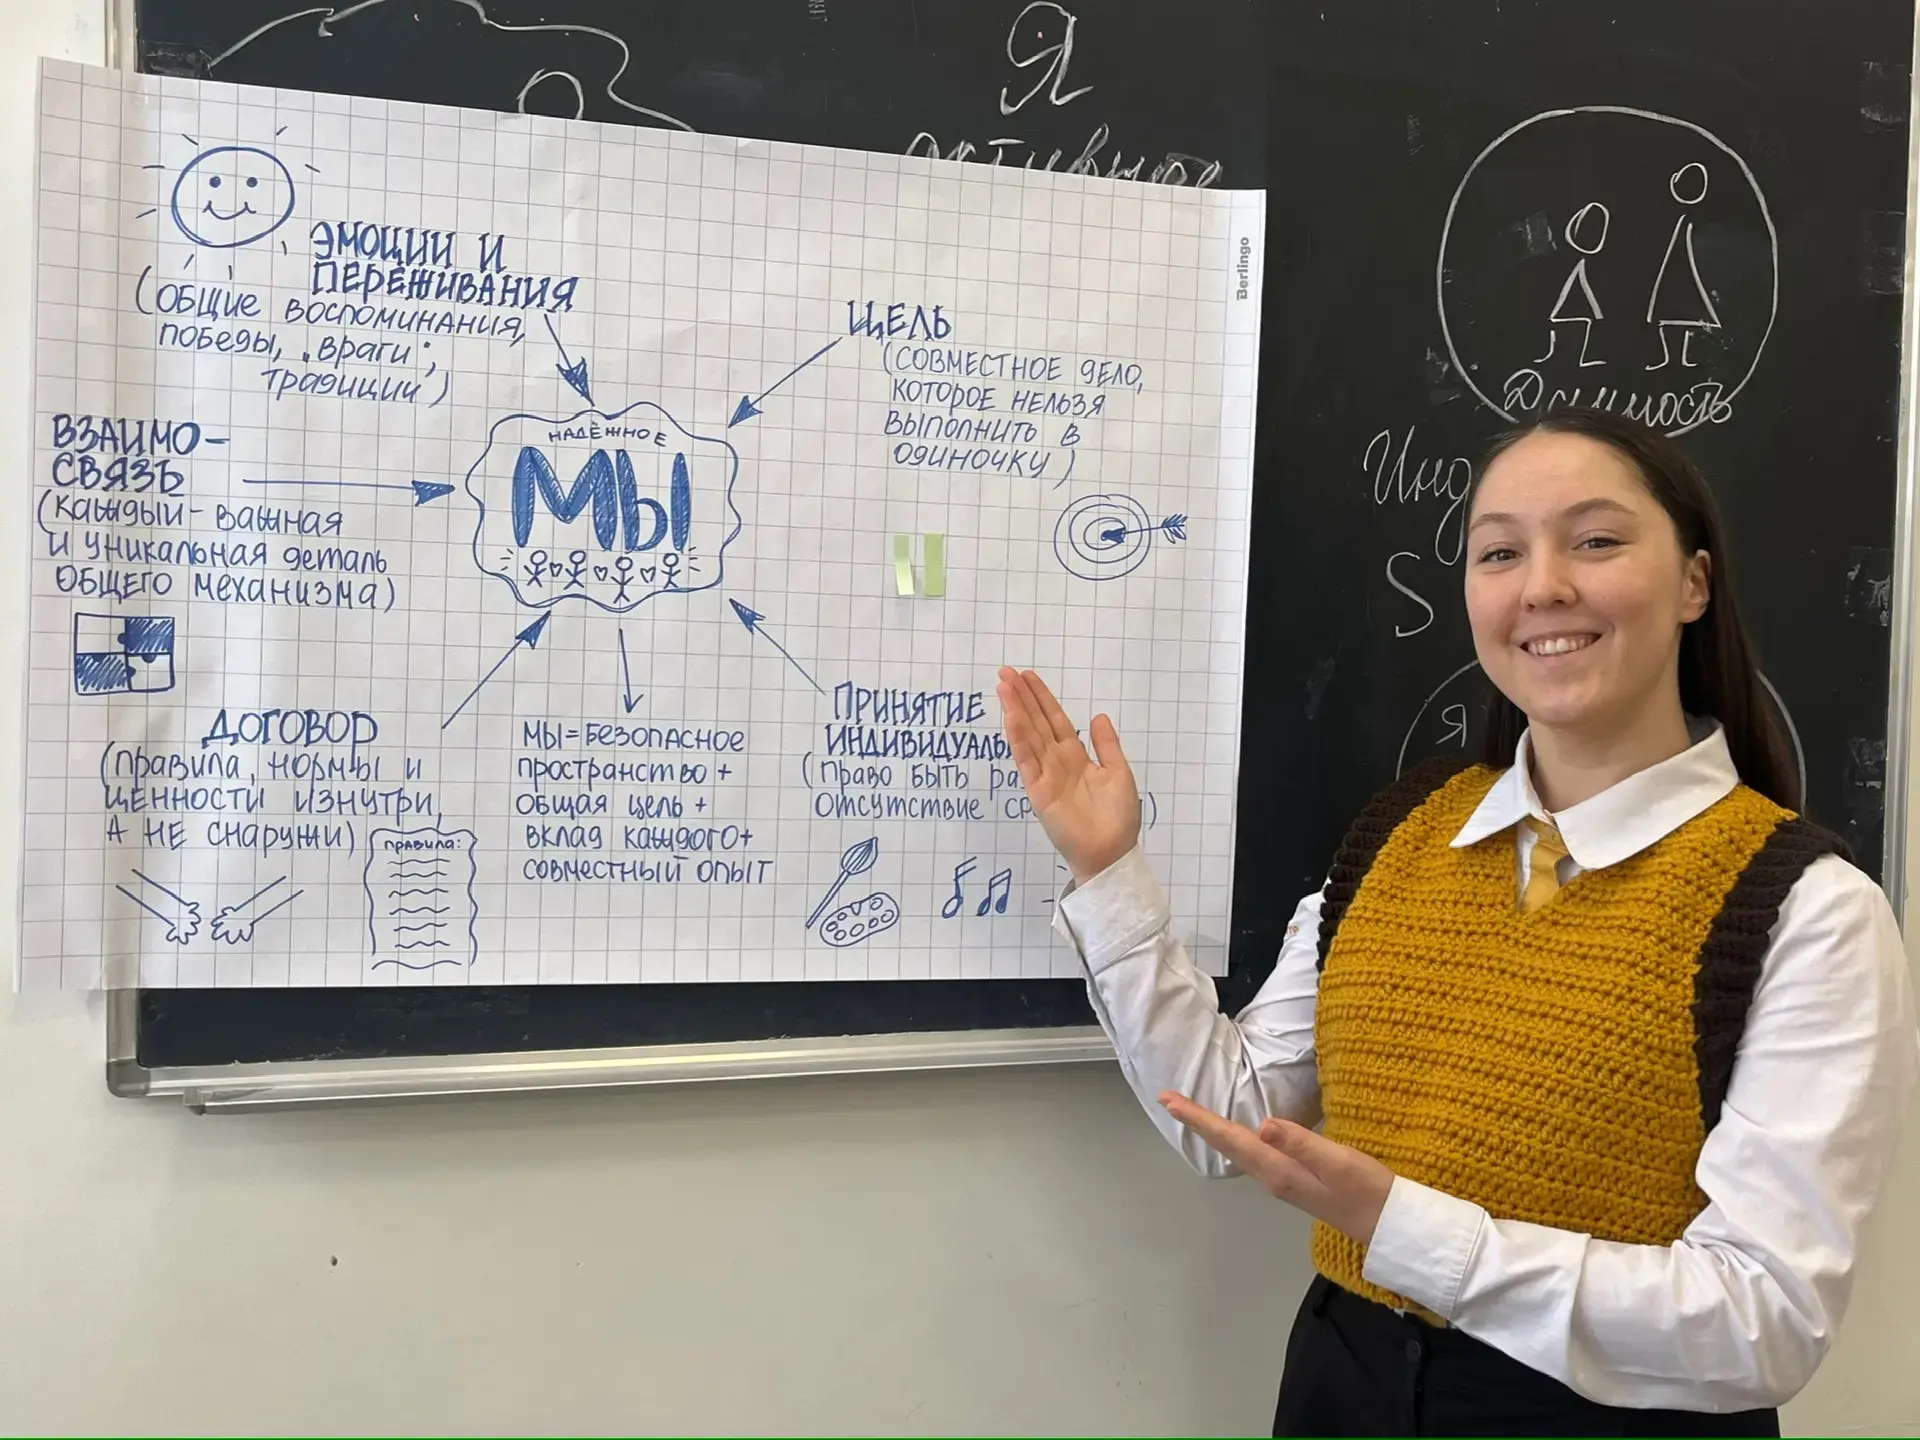 Я
активная
Berlingo
ЭМОЦИИ И
ПЕРЕЖИВАНИЯ
(общие воспоминания,
победы, "враги",
традиции)
ЦЕЛЬ
(совместное дело,
которое нельзя
выполнить в
одиночку)
ВЗАИМО-
СВЯЗЬ
(каждый - важная
и уникальная деталь
общего механизма)
НАДЁЖНОЕ
МЫ
ДОГОВОР
(правила, нормы и
ценности изнутри,
а не снаружи)
правила:
МЫ = БЕЗОПАСНОЕ
пространство +
общая цель +
вклад каждого +
совместный опыт
ПРИНЯТИЕ
(право быть
отсутствие
S
Я